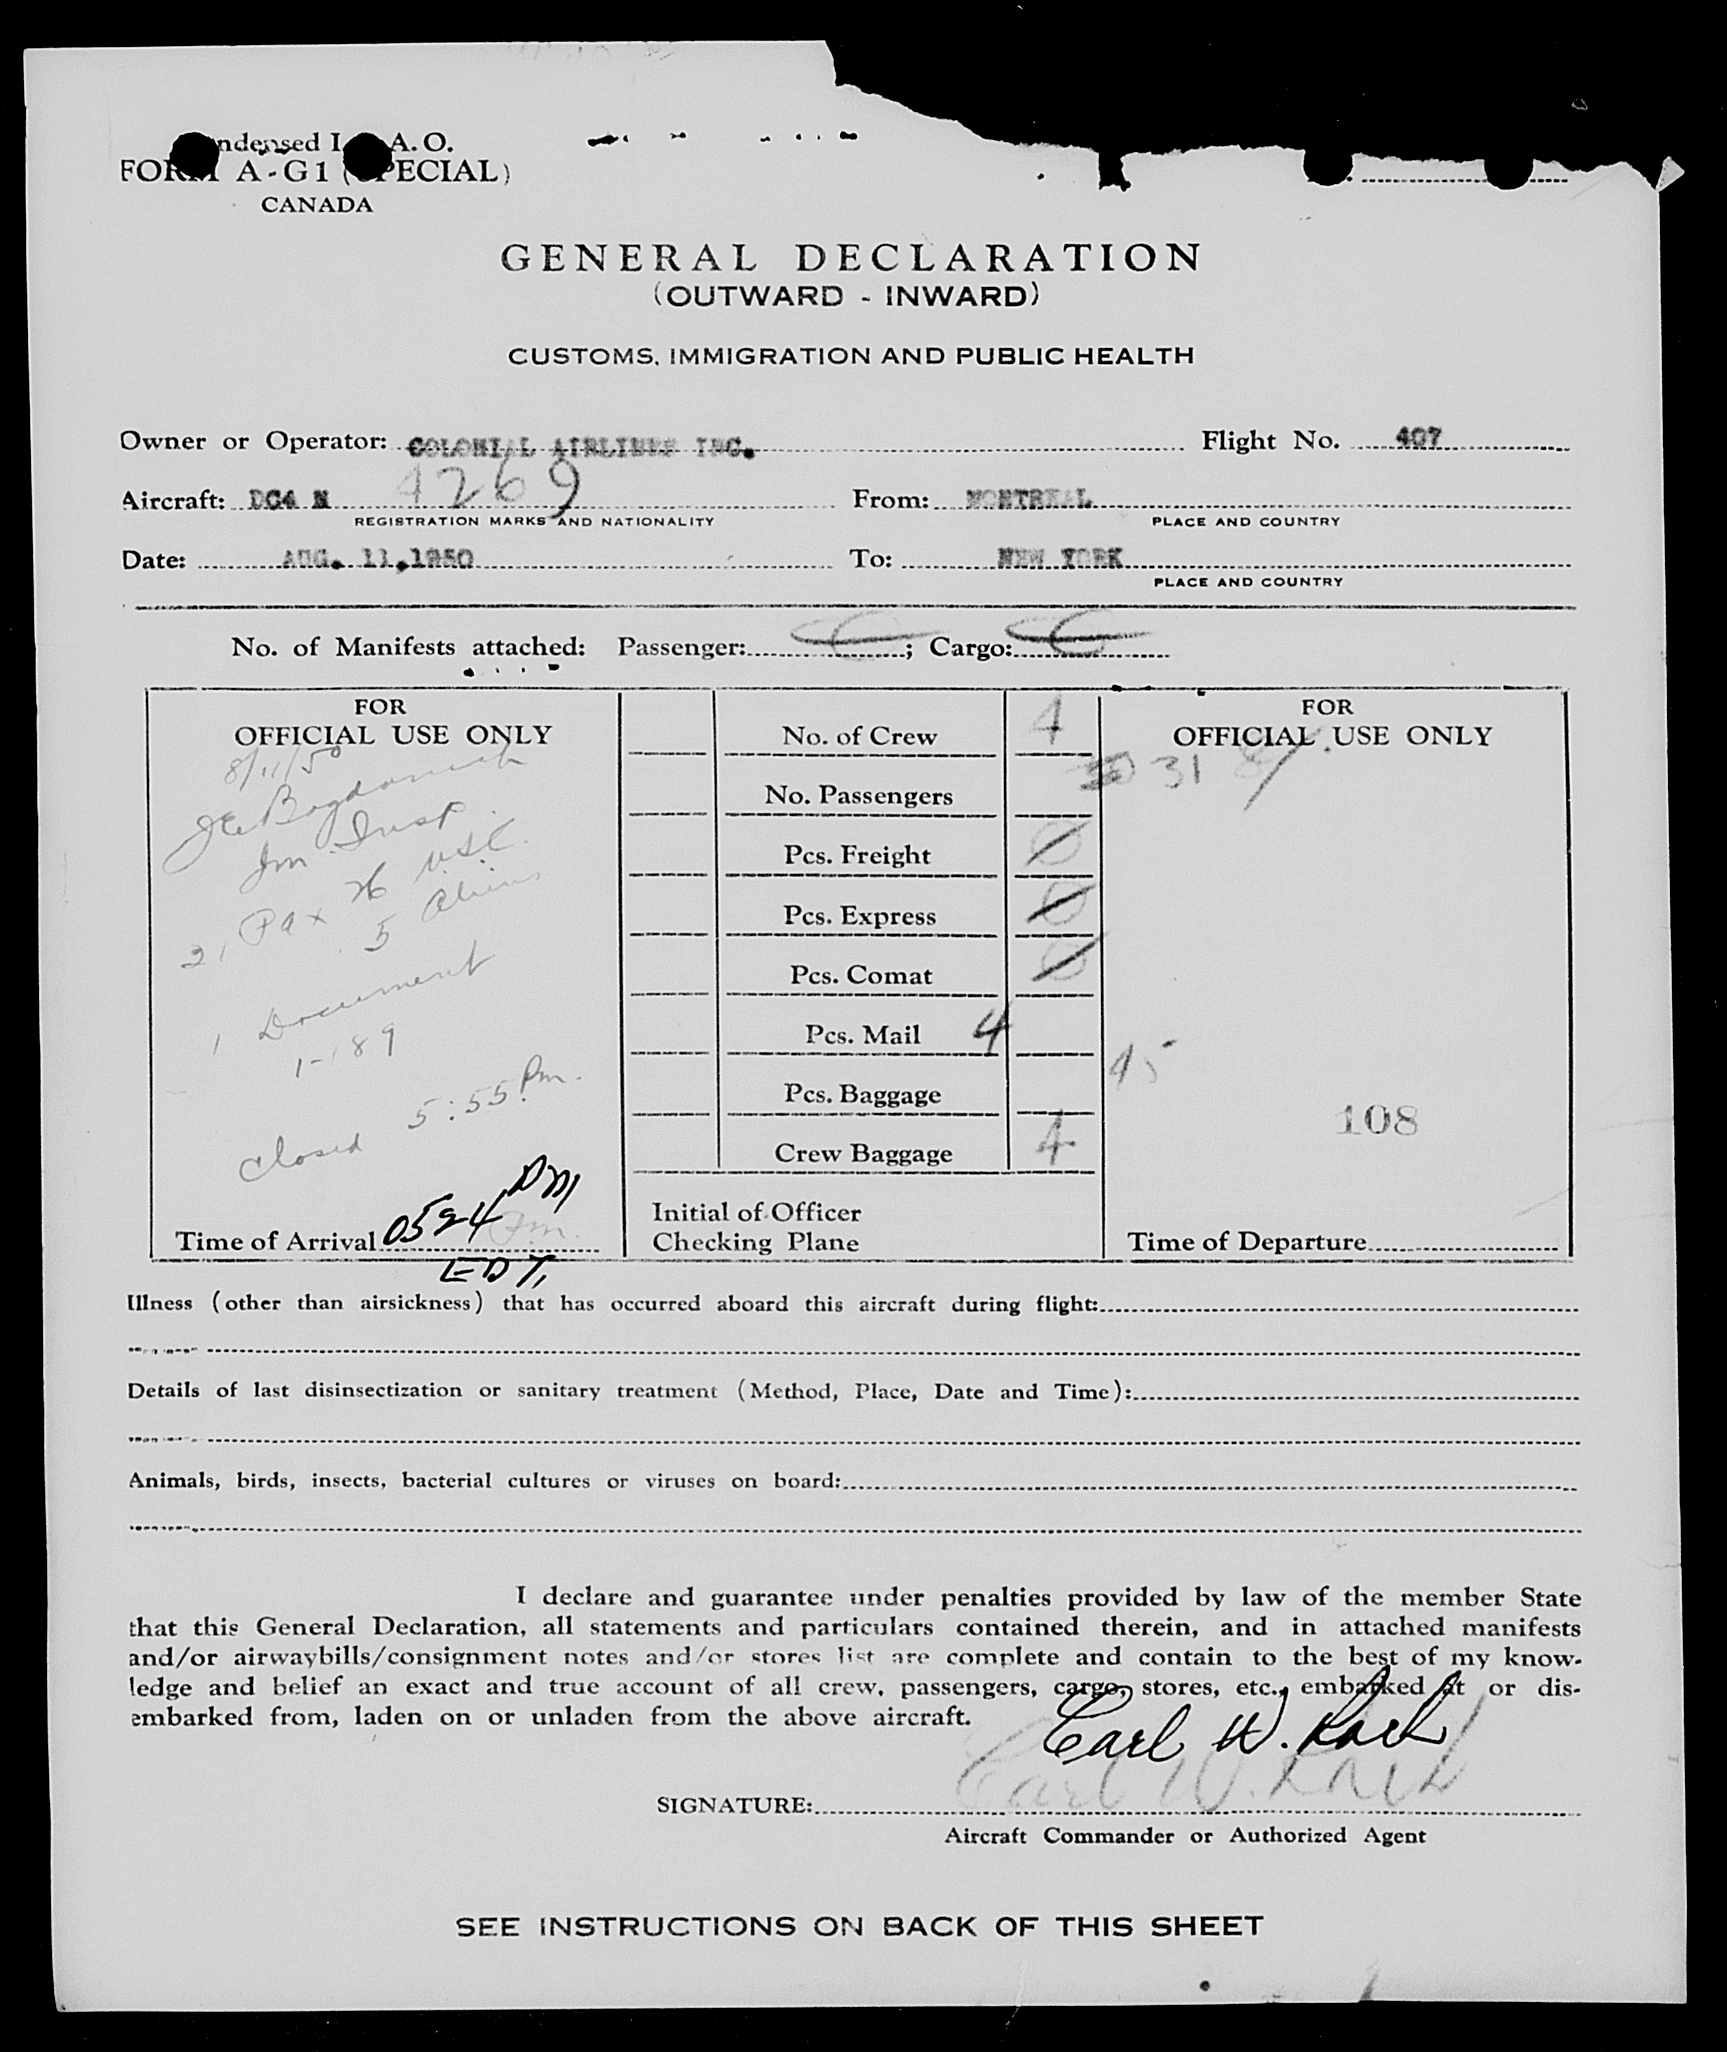 ndensed I A. O.
FORM A-G1 (SPECIAL)
CANADA
GENERAL DECLARATION
(OUTWARD - INWARD)
CUSTOMS, IMMIGRATION AND PUBLIC HEALTH
Owner or Operator: COLONIAL AIRLINES INC. Flight No. 407
Aircraft: DC4 N 4269 From: MONTREAL
REGISTRATION MARKS AND NATIONALITY PLACE AND COUNTRY
Date: AUG. 11,1950 To: NEW YORK
PLACE AND COUNTRY
No. of Manifests attached: Passenger: ; Cargo:
FOR
OFFICIAL USE ONLY
8/11/50
Bogdanich
Im. Insp.
21 Pax 26 USC
5 Aliens
1 Document
1-189
Closed 5:55 Pm.
Time of Arrival 0524 PM
EDT,
No. of Crew 4
No. Passengers
Pcs. Freight 0
Pcs. Express 0
Pcs. Comat 0
Pcs. Mail 4
Pcs. Baggage
Crew Baggage 4
Initial of Officer
Checking Plane
FOR
OFFICIAL USE ONLY
31
45
108
Time of Departure
Illness (other than airsickness) that has occurred aboard this aircraft during flight:
Details of last disinsectization or sanitary treatment (Method, Place, Date and Time):
Animals, birds, insects, bacterial cultures or viruses on board:
I declare and guarantee under penalties provided by law of the member State
that this General Declaration, all statements and particulars contained therein, and in attached manifests
and/or airwaybills/consignment notes and/or stores list are complete and contain to the best of my know-
ledge and belief an exact and true account of all crew, passengers, cargo, stores, etc., embarked at or dis-
embarked from, laden on or unladen from the above aircraft.
Carl W.
Carl W.
SIGNATURE:
Aircraft Commander or Authorized Agent
SEE INSTRUCTIONS ON BACK OF THIS SHEET